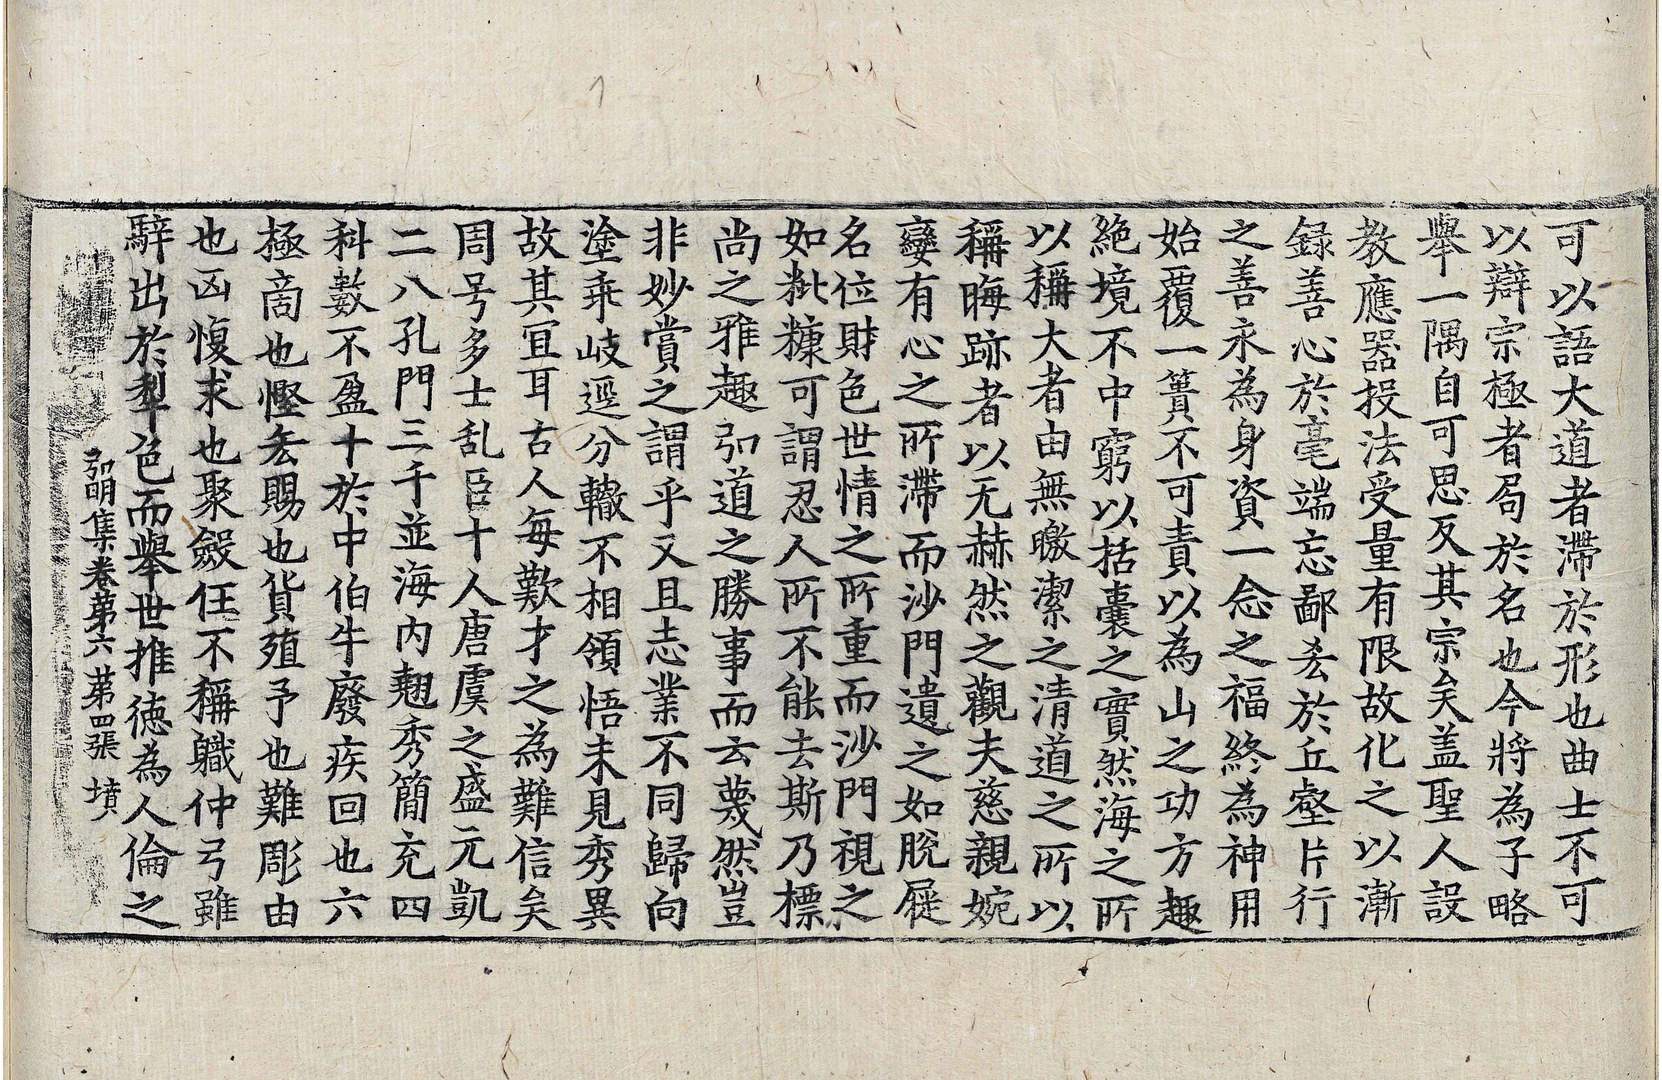 可以語大道者滯於形也曲士不可
以辯宗極者局於名也今將為子略
舉一隅自可思反其宗矣盖聖人設
教應器投法受量有限故化之以漸
録善心於毫端忘鄙𠫤於丘壑片行
之善永為身資一念之福終為神用
始覆一簣不可責以為山之功方趣
絶境不中窮以括囊之實然海之所
以稱大者由無皦潔之清道之所以
稱晦跡者以无赫然之觀夫慈親婉
孌有心之所滯而沙門遺之如脫屣
名位財色世情之所重而沙門視之
如粃糠可謂忍人所不能去斯乃標
尚之雅趣弘道之勝事而云蔑然豈
非妙賞之謂乎又且志業不同歸向
塗乖岐逕分轍不相領悟未見秀異
故其冝耳古人每歎才之為難信矣
周号多士乱臣十人唐虞之盛元凱
二八孔門三千並海內翹秀簡充四
科數不盈十於中伯牛廢疾回也六
極啇也慳𠫤賜也貨殖予也難彫由
也凶愎求也聚斂任不稱職仲弓雖
騂出於犁色而舉世推德為人倫之
弘明集卷苐六 苐四張 墳